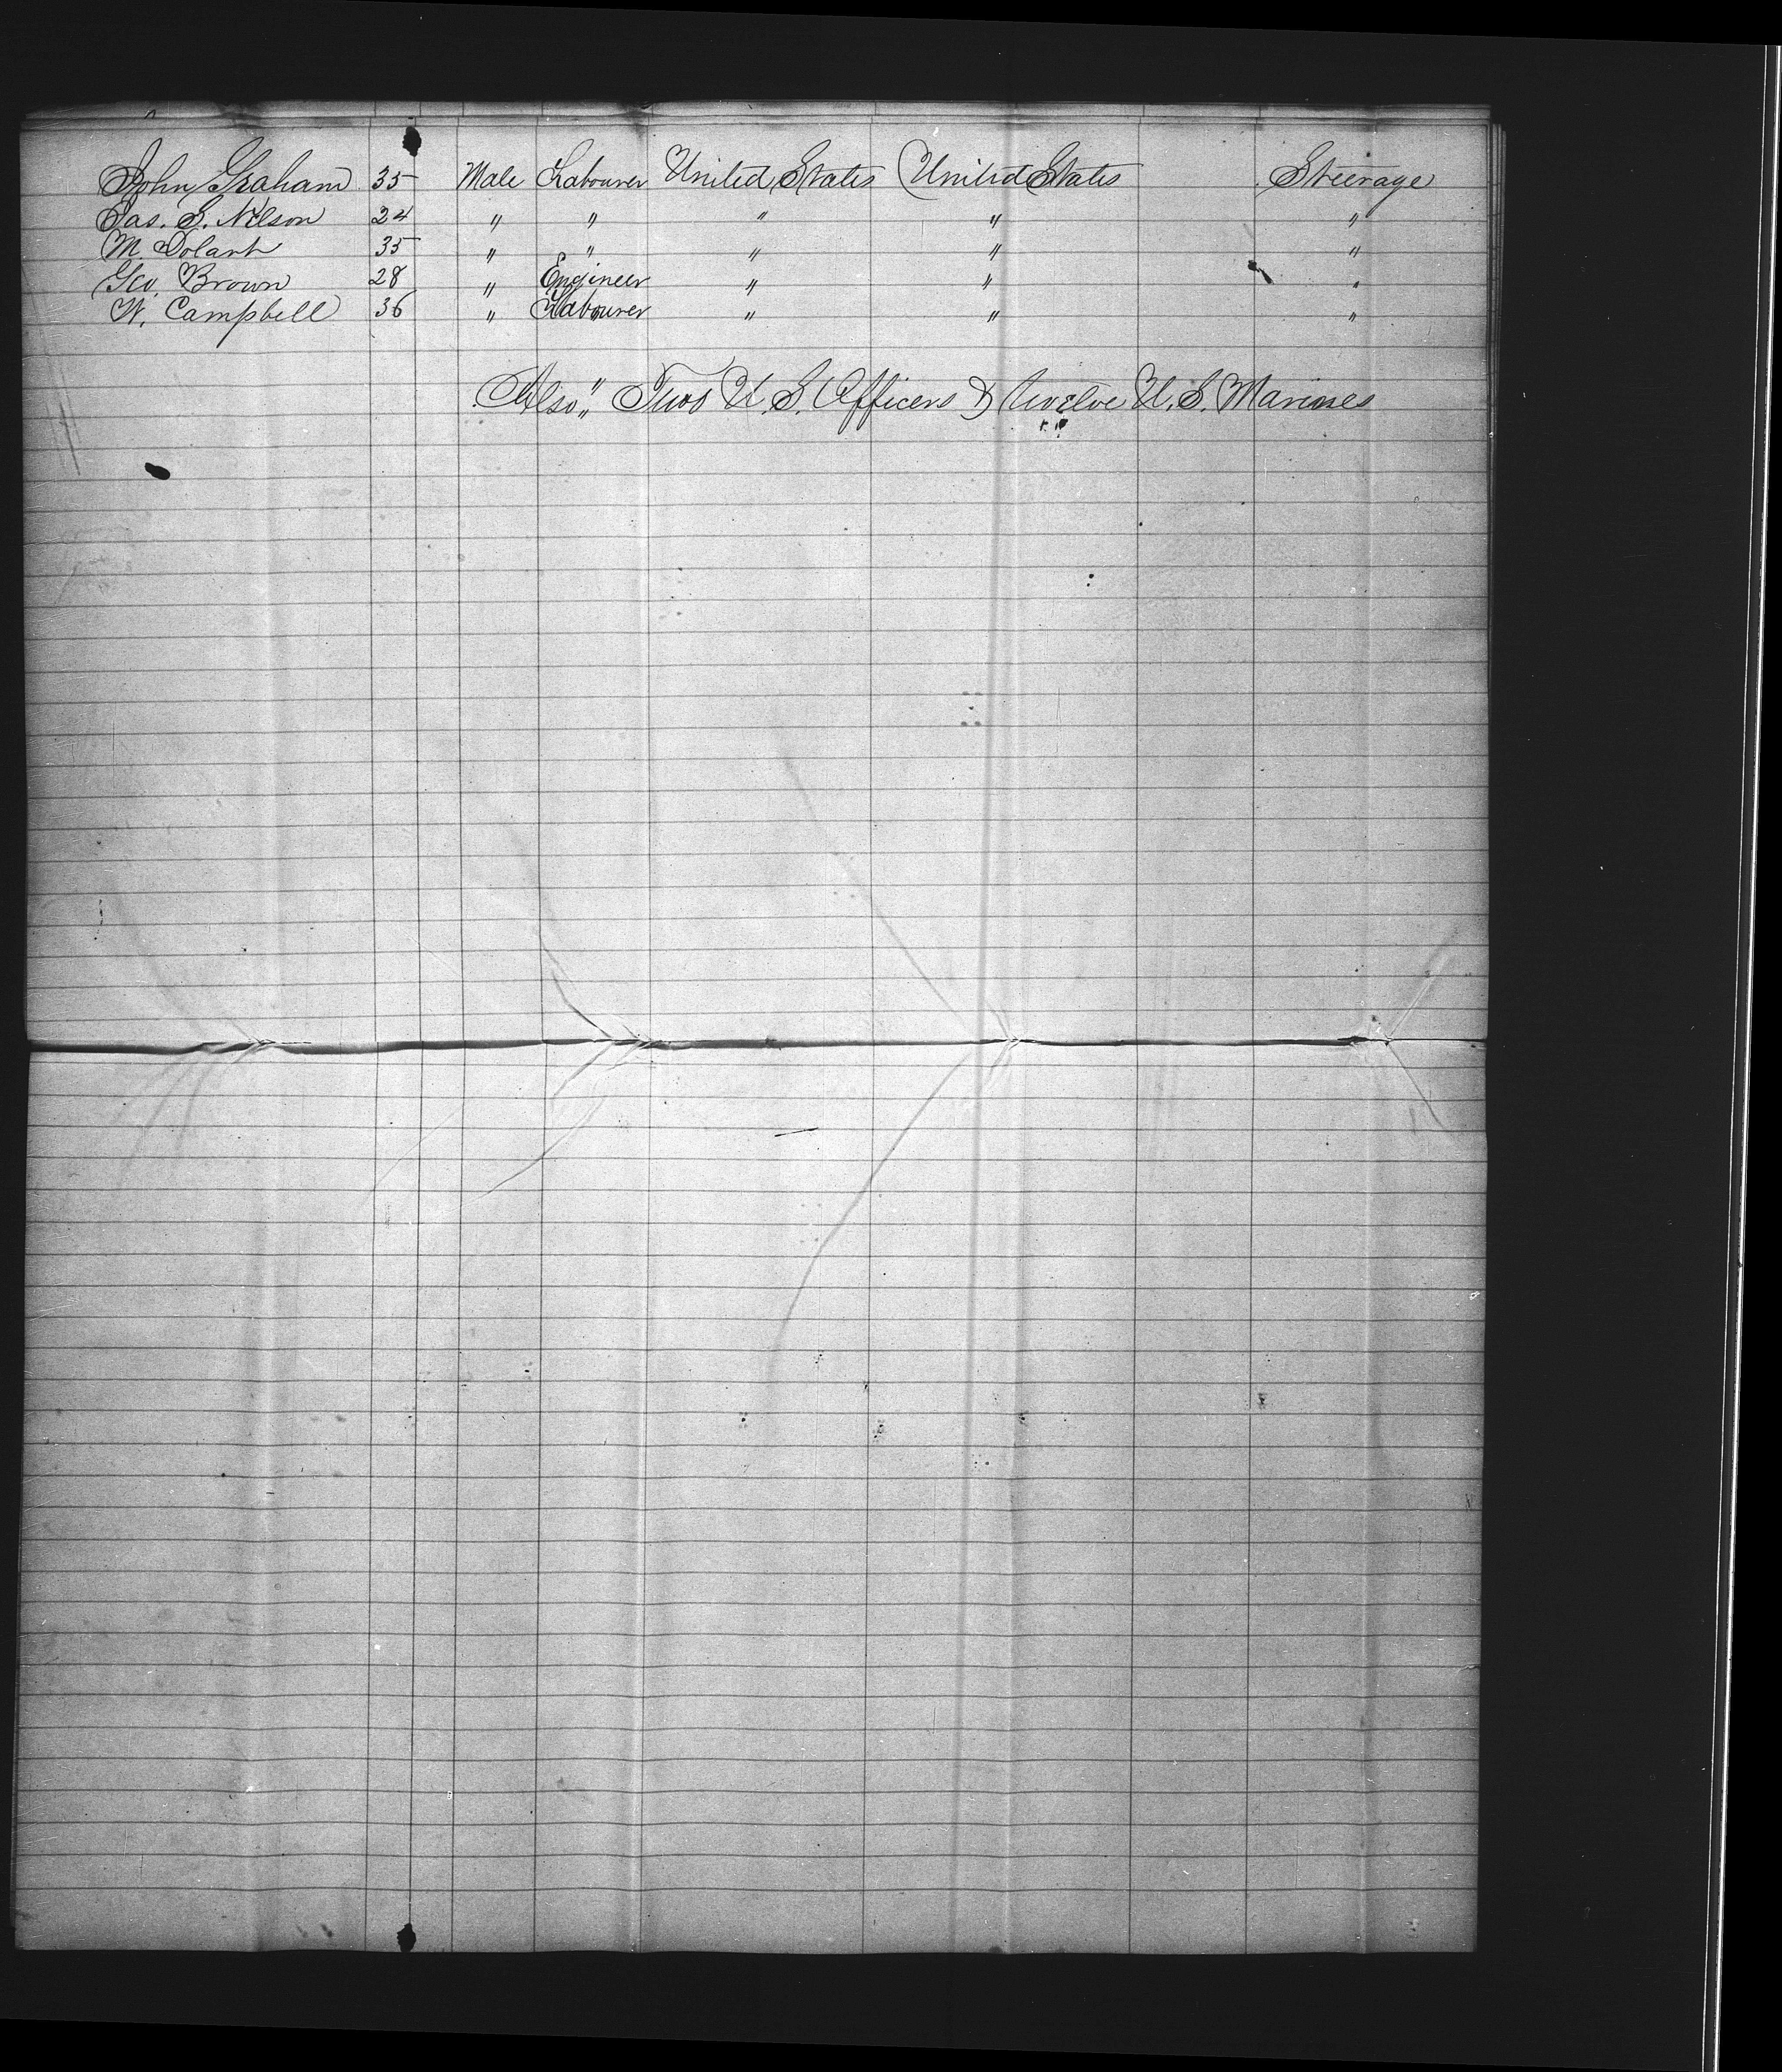 John Graham 35 Male Labourer United States United States Steerage
Jas. S. Nelson 24 " " " " "
M. Dolan 35 " " " " "
Geo Brown 28 " Engineer " " "
W. Campbell 36 " Labourer " " "
Also,, Two U.S. Officers & twelve U.S. Marines